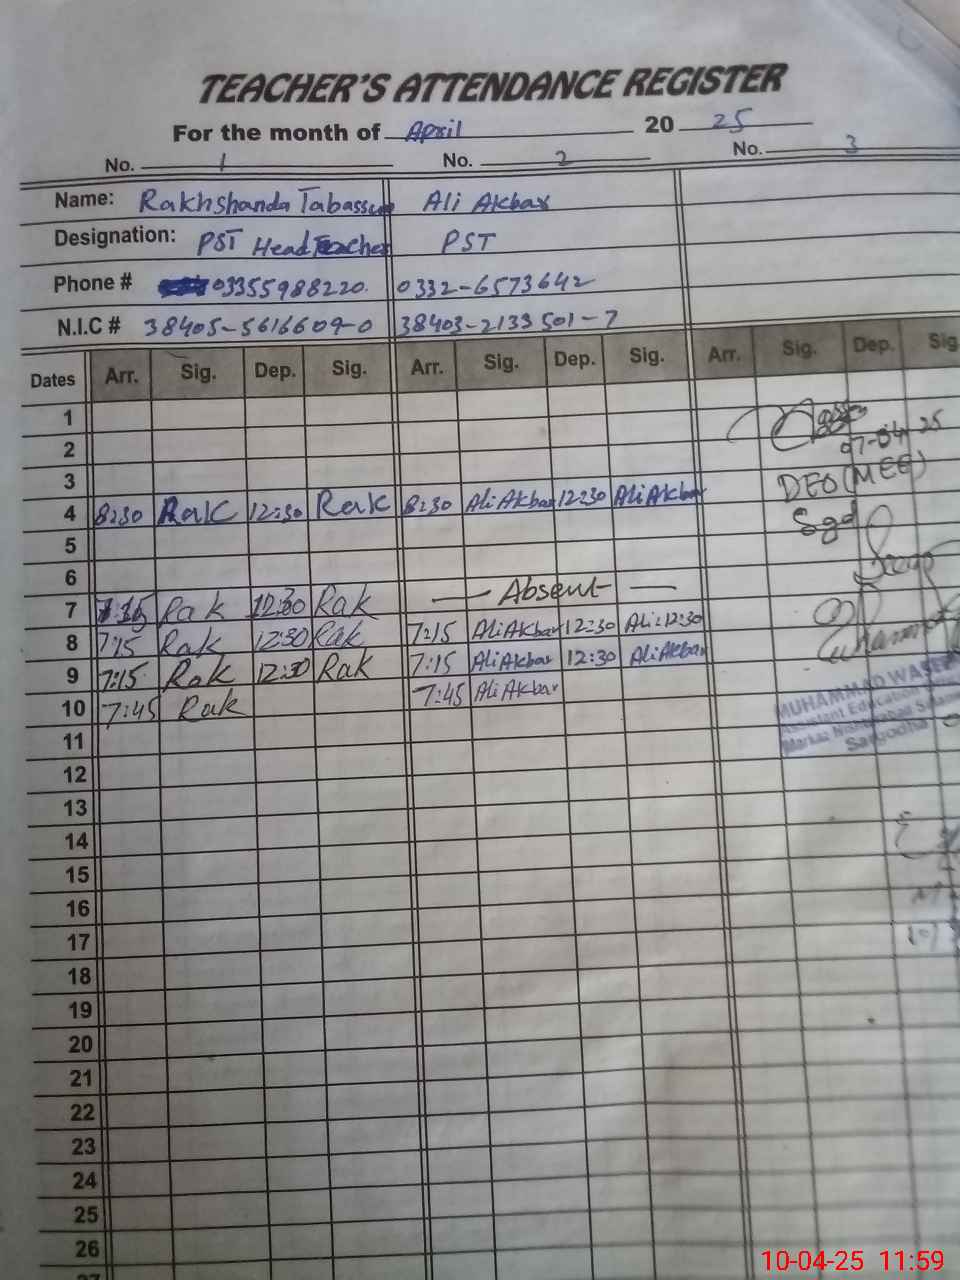 TEACHER'S ATTENDANCE REGISTER
For the month of April 20 25
No. 1 No. 2 No. 3
Name: Rakhshanda Tabassum Ali Akbar
Designation: PST Head Teacher PST
Phone # 03355988220. 0332-6573642
N.I.C # 38405-5616609-0 38403-2133501-7
Dates Arr. Sig. Dep. Sig. Arr. Sig. Dep. Sig. Arr. Sig. Dep. Sig
1
2 07-04-25
3 DEO(MEE)
4 8:30 Rak 12:30 Rak 8:30 Ali Akbar 12:30 Ali Akbar Sgd
5
6
7 7:15 Rak 12:30 Rak — Absent —
8 7:15 Rak 12:30 Rak 7:15 Ali Akbar 12:30 Ali 12:30
9 7:15 Rak 12:30 Rak 7:15 Ali Akbar 12:30 Ali Akbar
10 7:45 Rak 7:45 Ali Akbar
MUHAMMAD WASEE
Assistant Education
Markaz
Sargodha
11
12
13
14
15
16
17
18
19
20
21
22
23
24
25
26
27
10-04-25 11:59